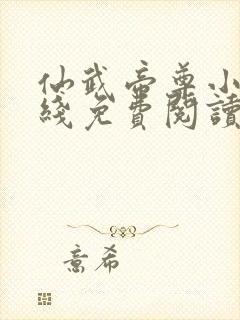 仙武帝尊小
綫免費閱讀
意希